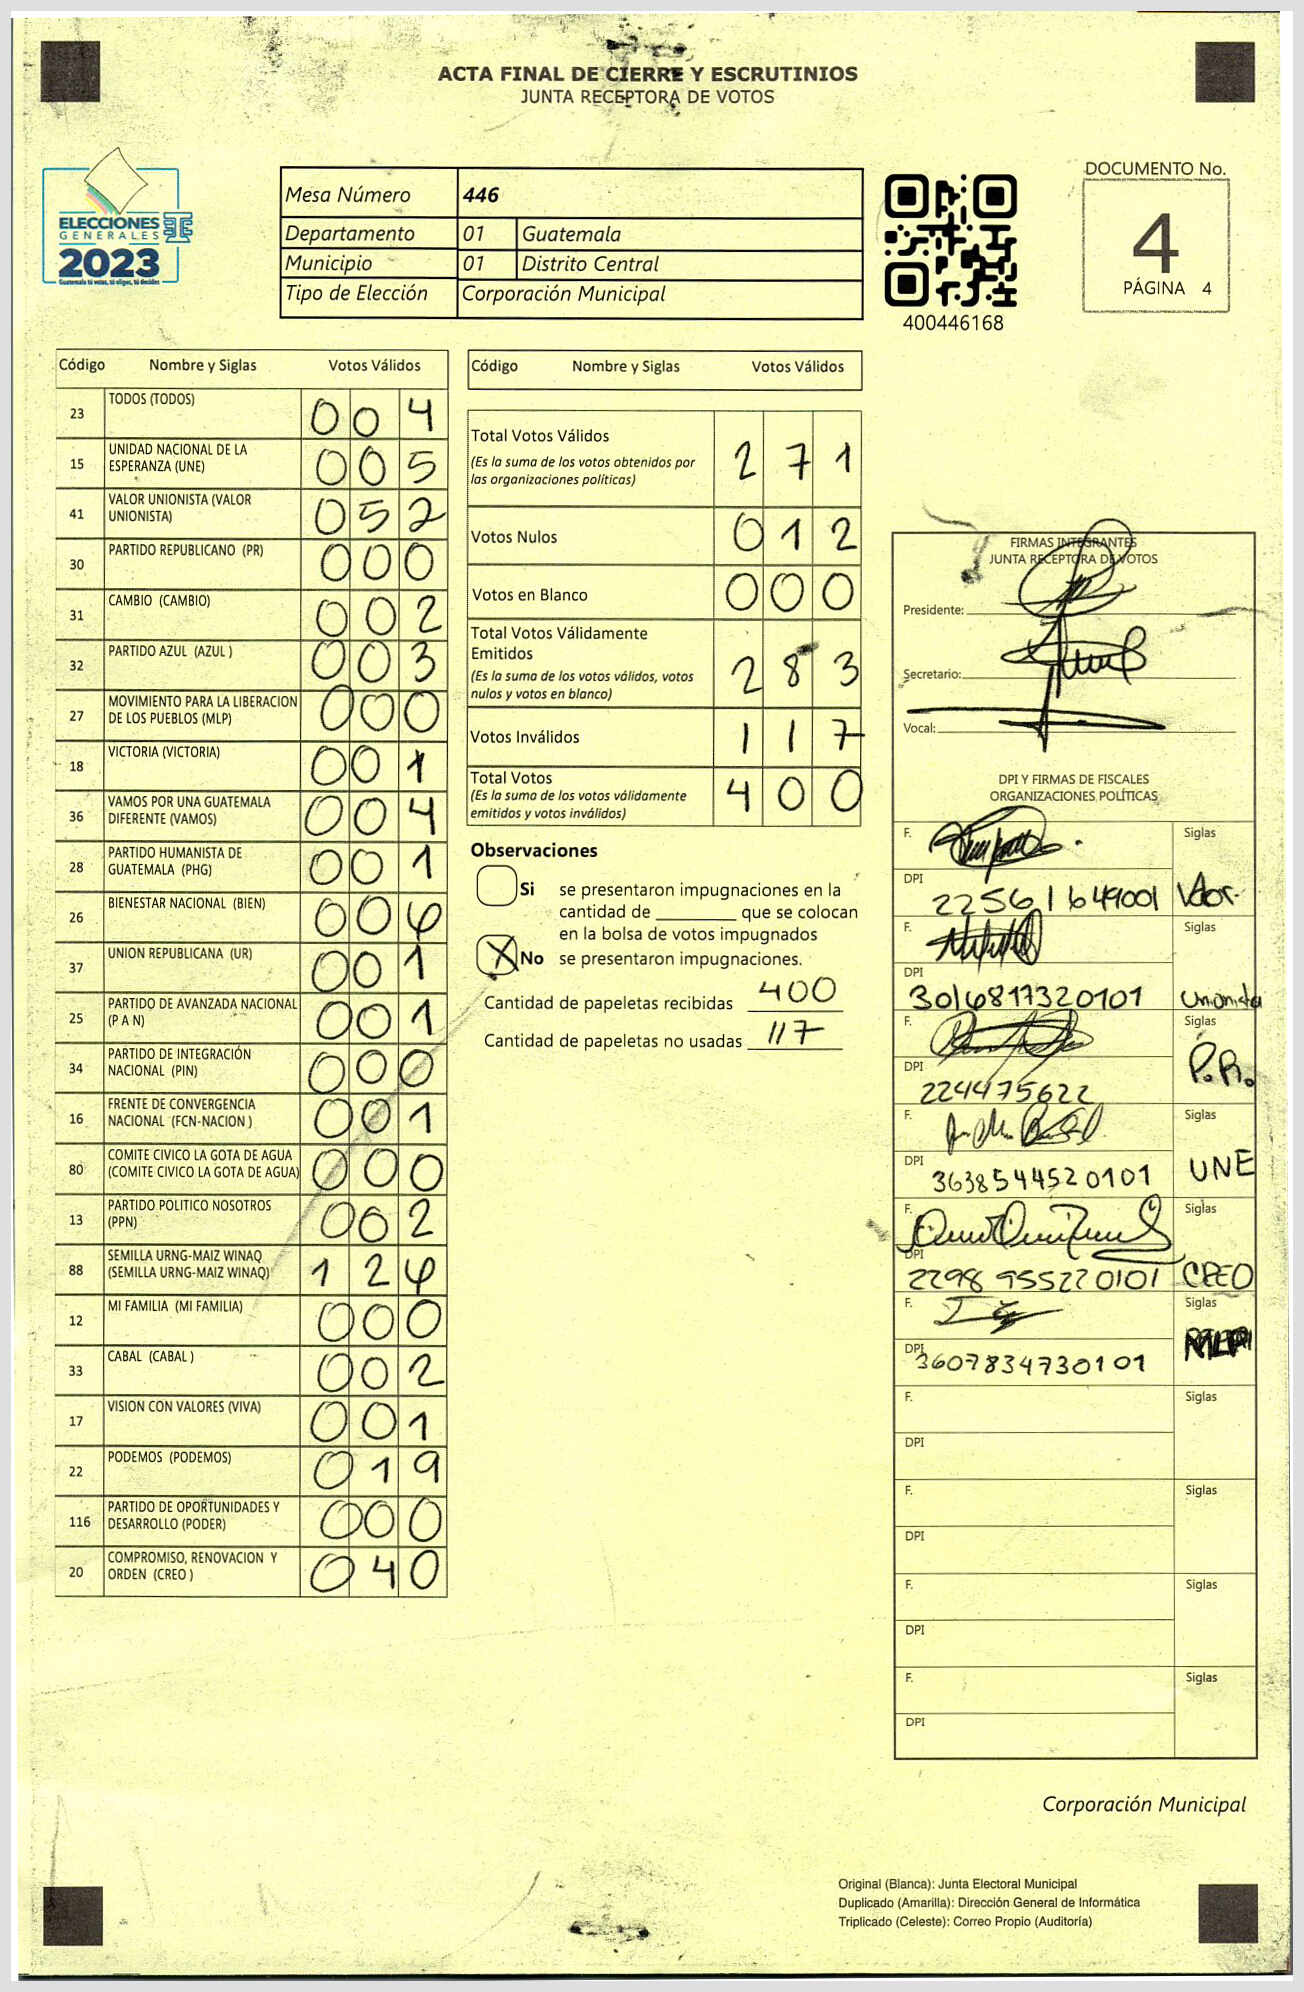 ACTA FINAL DE CIERRE Y ESCRUTINIOS
JUNTA RECEPTORA DE VOTOS
ELECCIONES
GENERALES
2023
Guatemala tú votas, tú eliges, tú decides
Mesa Número 446
Departamento 01 Guatemala
Municipio 01 Distrito Central
Tipo de Elección Corporación Municipal
400446168
DOCUMENTO No.
4
PÁGINA 4
Código Nombre y Siglas Votos Válidos
23 TODOS (TODOS) 0 0 4
15 UNIDAD NACIONAL DE LA
ESPERANZA (UNE) 0 0 5
41 VALOR UNIONISTA (VALOR
UNIONISTA) 0 5 2
30 PARTIDO REPUBLICANO (PR) 0 0 0
31 CAMBIO (CAMBIO) 0 0 2
32 PARTIDO AZUL (AZUL ) 0 0 3
27 MOVIMIENTO PARA LA LIBERACION
DE LOS PUEBLOS (MLP) 0 0 0
18 VICTORIA (VICTORIA) 0 0 1
36 VAMOS POR UNA GUATEMALA
DIFERENTE (VAMOS) 0 0 4
28 PARTIDO HUMANISTA DE
GUATEMALA (PHG) 0 0 1
26 BIENESTAR NACIONAL (BIEN) 0 0 6
37 UNION REPUBLICANA (UR) 0 0 1
25 PARTIDO DE AVANZADA NACIONAL
(P A N) 0 0 1
34 PARTIDO DE INTEGRACIÓN
NACIONAL (PIN) 0 0 0
16 FRENTE DE CONVERGENCIA
NACIONAL (FCN-NACION ) 0 0 1
80 COMITE CIVICO LA GOTA DE AGUA
(COMITE CIVICO LA GOTA DE AGUA) 0 0 0
13 PARTIDO POLITICO NOSOTROS
(PPN) 0 0 2
88 SEMILLA URNG-MAIZ WINAQ
(SEMILLA URNG-MAIZ WINAQ) 1 2 6
12 MI FAMILIA (MI FAMILIA) 0 0 0
33 CABAL (CABAL ) 0 0 2
17 VISION CON VALORES (VIVA) 0 0 1
22 PODEMOS (PODEMOS) 0 1 9
116 PARTIDO DE OPORTUNIDADES Y
DESARROLLO (PODER) 0 0 0
20 COMPROMISO, RENOVACION Y
ORDEN (CREO ) 0 4 0
Código Nombre y Siglas Votos Válidos
Total Votos Válidos 2 7 1
(Es la suma de los votos obtenidos por
las organizaciones políticas)
Votos Nulos 0 1 2
Votos en Blanco 0 0 0
Total Votos Válidamente
Emitidos 2 8 3
(Es la suma de los votos válidos, votos
nulos y votos en blanco)
Votos Inválidos 1 1 7
Total Votos 4 0 0
(Es la suma de los votos válidamente
emitidos y votos inválidos)
Observaciones
Si se presentaron impugnaciones en la
cantidad de ________ que se colocan
en la bolsa de votos impugnados
X No se presentaron impugnaciones.
Cantidad de papeletas recibidas 400
Cantidad de papeletas no usadas 117
FIRMAS INTEGRANTES
JUNTA RECEPTORA DE VOTOS
Presidente:
Secretario:
Vocal:
DPI Y FIRMAS DE FISCALES
ORGANIZACIONES POLÍTICAS
F. Siglas
DPI 225611649001 Valor.
F. Siglas
DPI 3016817320101 Unionista
F. Siglas
DPI 224475622 P.R.
F. Siglas
DPI 3638544520101 UNE
F. Siglas
DPI 2298 955220101 CREO
F. Siglas
DPI 3607834730101
F. Siglas
DPI
F. Siglas
DPI
F. Siglas
DPI
F. Siglas
DPI
Corporación Municipal
Original (Blanca): Junta Electoral Municipal
Duplicado (Amarilla): Dirección General de Informática
Triplicado (Celeste): Correo Propio (Auditoría)